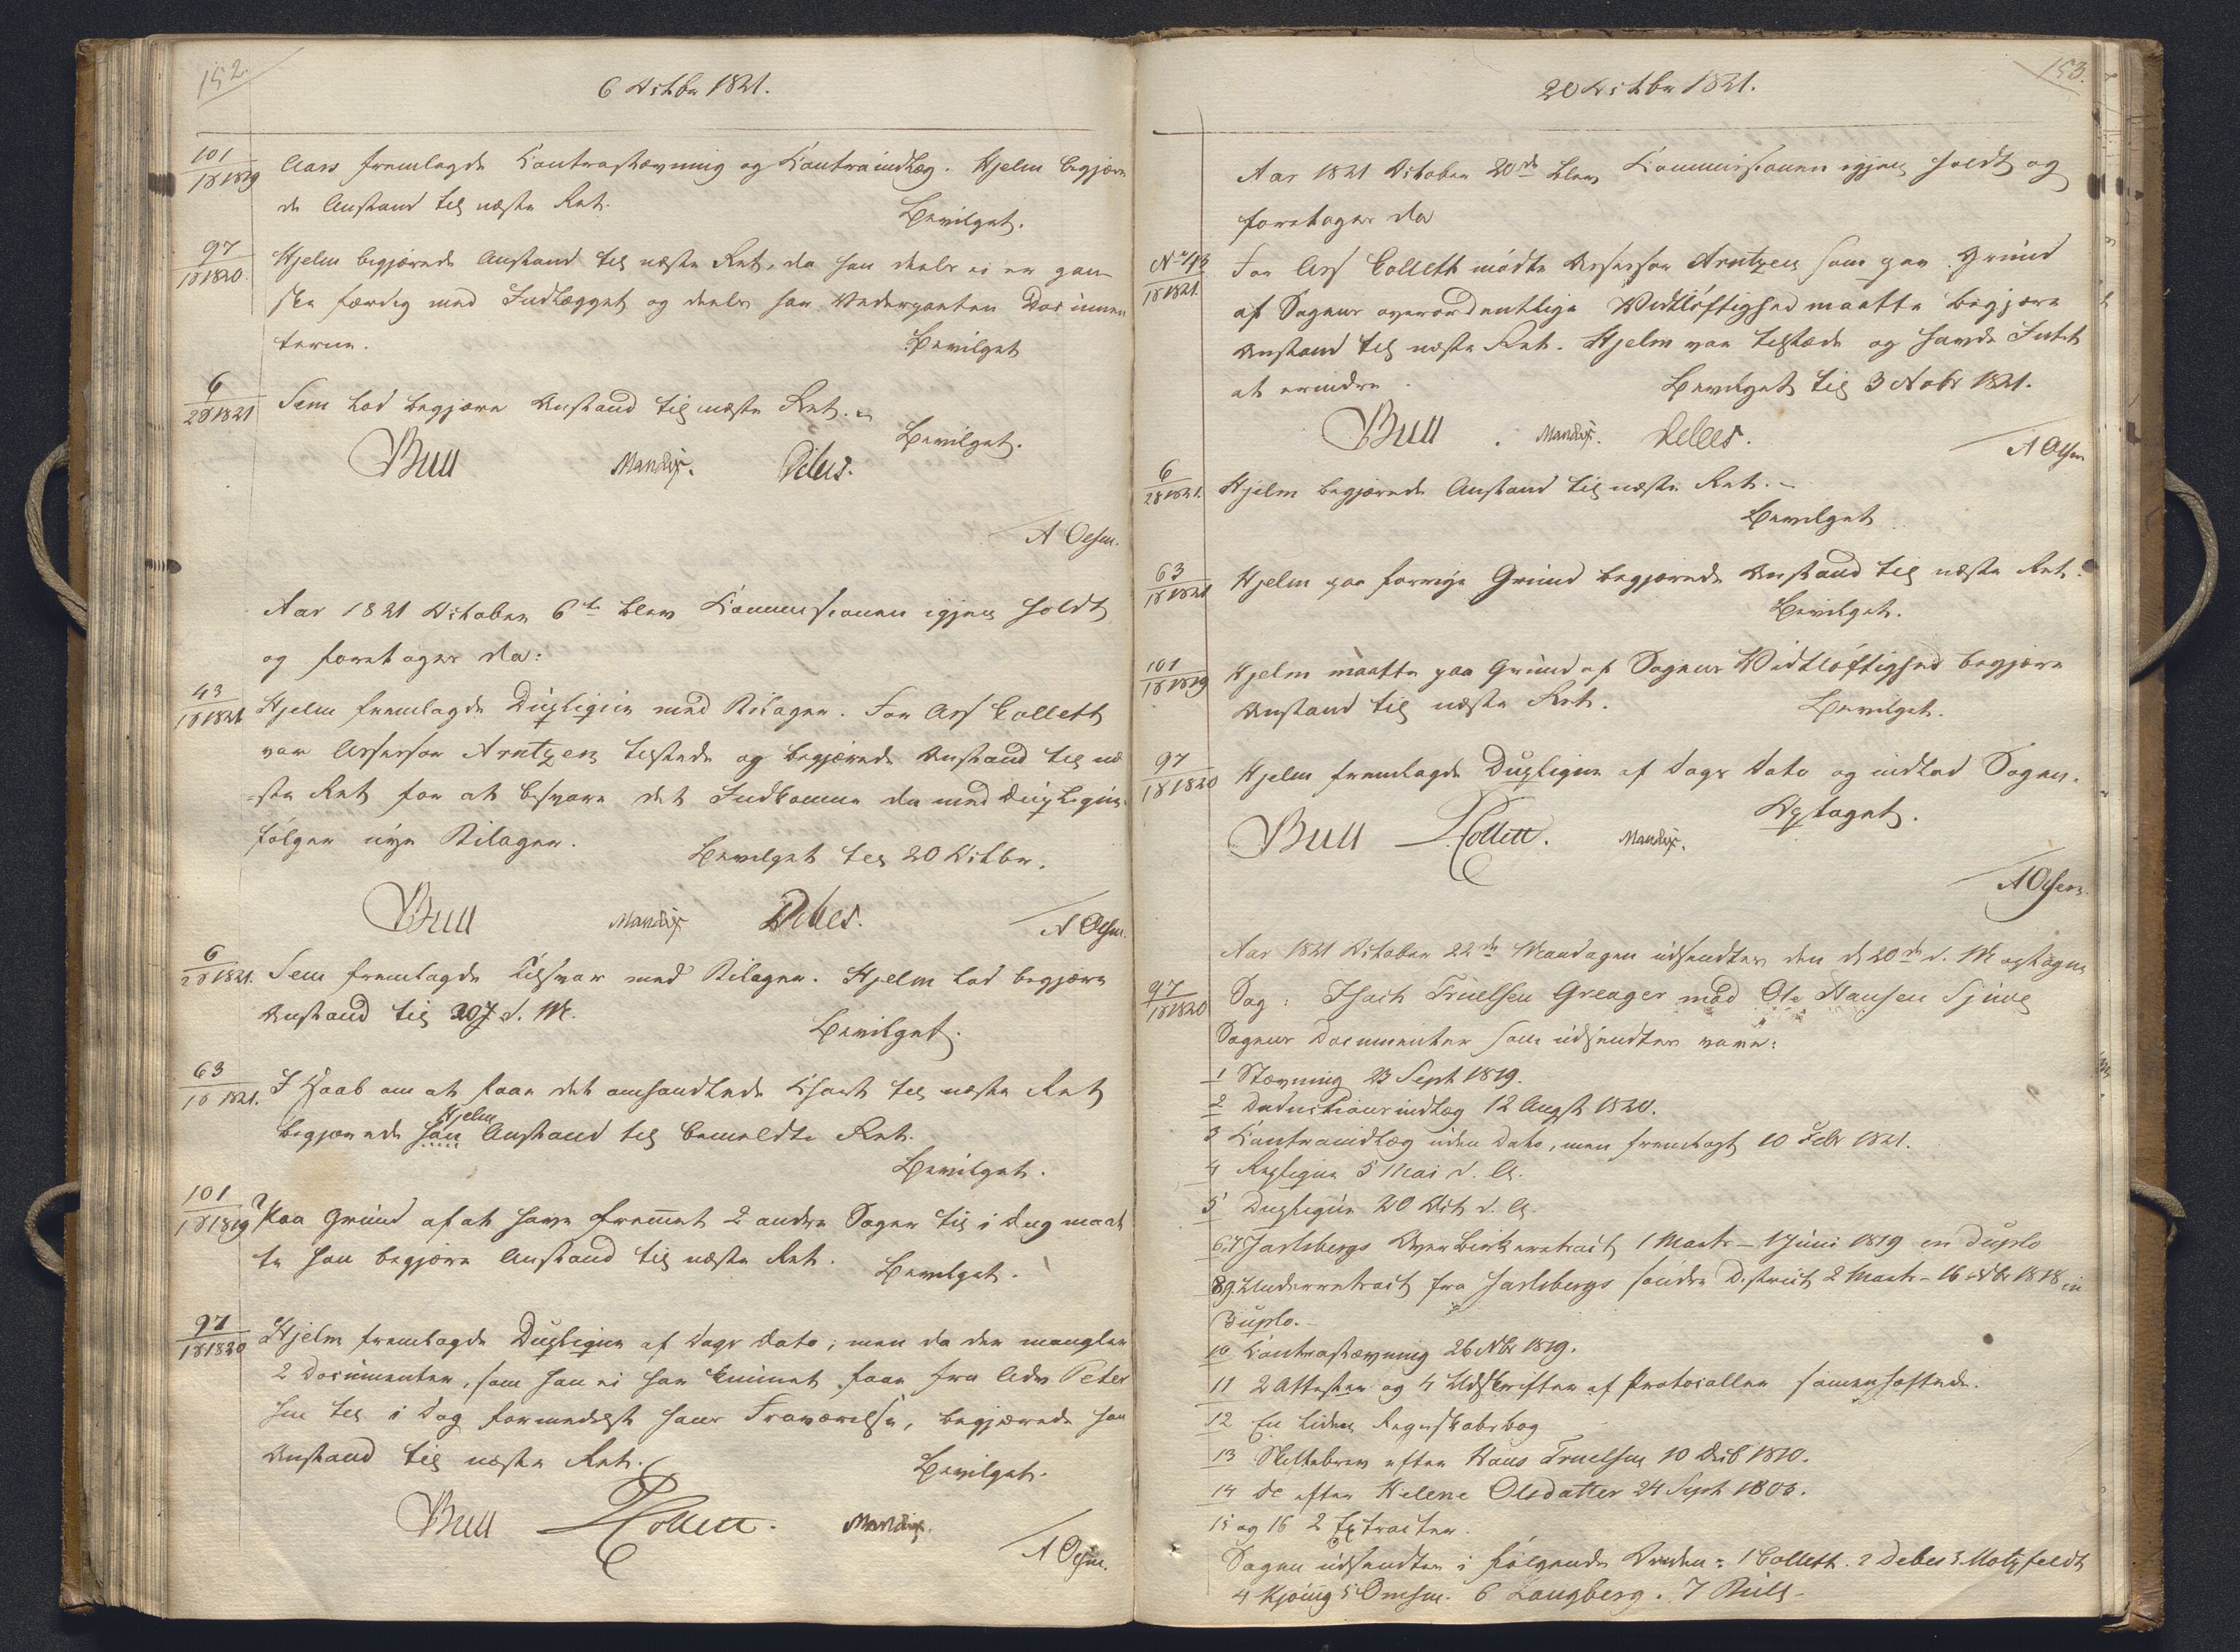 152.
6 Octbr 1821.
101
1ð 1819
Aars fremlagde Kontrastævning og Kontraindlæg. Hjelm begjære
de Anstand til næste Ret.
Bevilget.
97
1ð 1820.
Hjelm begjærede Anstand til næste Ret, da han deels ei er gan
ske færdig med Indlægget og deels har Vederparten Docümen
terne.
Bevilget
6
2ð 1821
Sem lod begjære Anstand til næste Ret.
Bevilget.
Bull Manthey. Debes.
A Olsen.
Aar 1821 October 6te blev Kommissionen igjen holdt
og foretoges da:
43
1ð 1821
Hjelm fremlagde Düpliqüe med Bilager. For Ass Collett
var Assessor Arntzen tilstede og begjærede Anstand til næ
ste Ret for at besvare det Indkomne da med Düpliqüe
følger nÿe Bilager.
Bevilget til 20 Octbr.
Bull Manthey Debes.
A Olsen.
6
2ð 1821.
Sem fremlagde Tilsvar med Bilager. Hjelm lod begjære
Anstand til 20 d. M.
Bevilget.
63
1ð 1821.
I Haab om at faae det omhandlede Skort til næste Ret
Hjelm
begjærede han Anstand til bemeldte Ret.
Bevilget.
101
1ð 1819
Paa Gründ af at have fremet 2 andre Sager til i dag maat
te han begjære Anstand til næste Ret.
Bevilget.
97
1ð 1820
Hjelm fremlagde Düpliqüe af Dags Dato; men da der mangler
2 Documenter, som han ei har kunnet faae fra Adv Peter
sen til i Dag formedelst hans Fraværelse, begjærede han
Anstand til næste Ret.
Bevilget.
Bull Collett. Manthey.
A Olsen.
153.
20 Octbr 1821.
Aar 1821 October 20de blev Kommissionen igjen holdt og
foretoges da
No 43
1ð 1821.
For Ass Collett mødte Assessor Arntzen som paa Gründ
af Sagens overordentlige Vidtløftighed maatte begjære
Anstand til næste Ret. Hjelm var tilstede og havde Intet
at erindre.
Bevilget til 3 Nobr 1821.
Bull. Manthey. Debes.
A Olsen
6
2ð 1821.
Hjelm begjærede Anstand til næste Ret.
Bevilget
63
1ð 1821
Hjelm paa forrige Gründ begjærede Anstand til næste Ret.
Bevilget.
101
1ð 1819
Hjelm maatte paa Gründ af Sagens Vidtløftighed begjære
Anstand til næste Ret.
Bevilget.
97
1ð 1820
Hjelm fremlagde Düpliqüe af Dags Dato og indlod Sagen.
Optaget.
Bull Collett. Manthey.
A Olsen.
Aar 1821 October 22de Mandagen üdsendtes den d 20de d. M optagne
97
1ð 1820
Sag: Isach Trüelsen Greager mod Ole Hansen Sjüve
Sagens Documenter som üdsendtes vare:
1 Stævning 23 Sept 1819.
2 Deductionsindlæg 12 Augst 1820.
3 Kontraindlæg üden Dato, men fremlagt 10 Febr 1821.
4 Repliqüe 5 Mai d. A.
5 Düpliqüe 20 Oct d. A.
6.7. Jarlsbergs Overbirkeretsact 1 Marts - 1 Jüni 1819 in Düplo
8.9. Underretsact fra Jarlsbergs søndre District 2 Marts - 16 Octbr 1818 in
Düplo.
10 Kontrastævning 26 Nbr 1819.
11 2 Attester og 4 Udskrifter af Protocoller samenhæftede.
12 En liden Regnskabsbog
13 Skiftebrev efter Hans Truelsen 10 Decb 1810.
14 do efter Helene Olsdatter 24 Sept 1803.
15 og 16 2 Extracter.
Sagen üdsendtes i følgende Orden: 1 Collett. 2 Debes 3 Motzfeldt
4 Kjöing 5 Omsen. 6 Langberg. 7 Bull